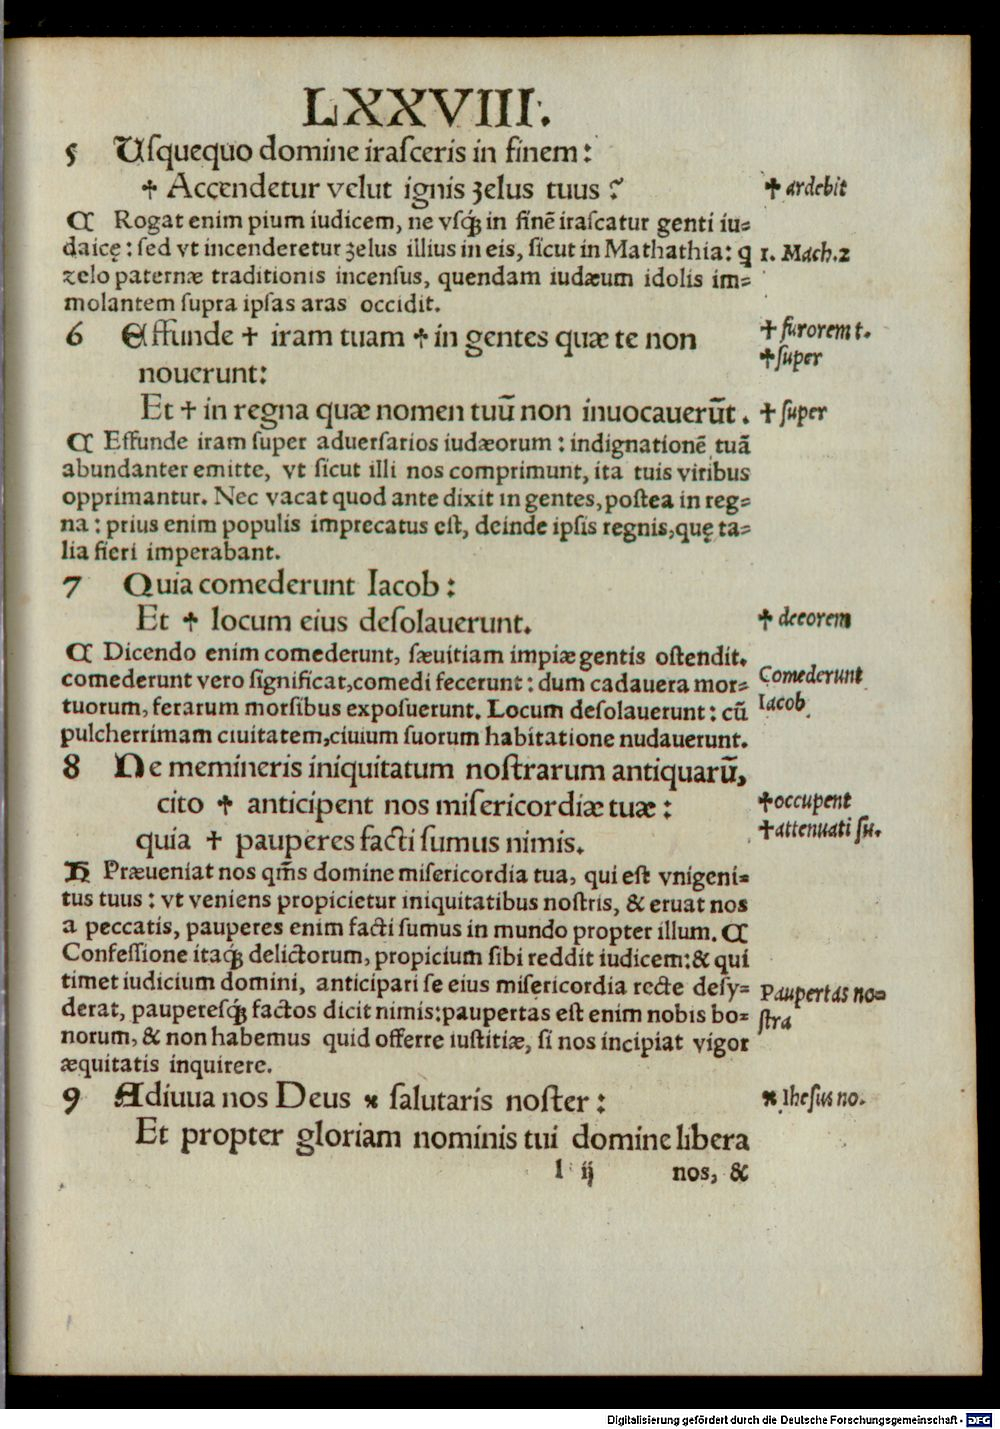 LXXVIII.
5 Uſquequo domine iraſceris in finem:
✝ Accendetur velut ignis zelus tuus?
✝ ardebit
¶ Rogat enim pium iudicem, ne vſqꝫ in finē iraſcatur genti iu⸗
daicę: ſed vt incenderetur zelus illius in eis, ſicut in Mathathia: q
1. Mach. 2
zelo paternæ traditionis incenſus, quendam iudæum idolis im⸗
molantem ſupra ipſas aras occidit.
6 Effunde ✝ iram tuam ✝ in gentes quæ te non
✝ furorem t.
✝ ſuper
nouerunt:
Et ✝ in regna quæ nomen tuū non inuocauerūt.
✝ ſuper
¶ Effunde iram ſuper aduerſarios iudæorum: indignationē tuā
abundanter emitte, vt ſicut illi nos comprimunt, ita tuis viribus
opprimantur. Nec vacat quod ante dixit in gentes, poſtea in reg⸗
na: prius enim populis imprecatus eſt, deinde ipſis regnis, quę ta⸗
lia fieri imperabant.
7 Quia comederunt Iacob:
Et ✝ locum eius deſolauerunt.
✝ decorem
¶ Dicendo enim comederunt, ſæuitiam impiæ gentis oſtendit.
comederunt vero ſignificat, comedi fecerunt: dum cadauera mor⸗
Comederunt
tuorum, ferarum morſibus expoſuerunt. Locum deſolauerunt: cū
Iacob.
pulcherrimam ciuitatem, ciuium ſuorum habitatione nudauerunt.
8 Ne memineris iniquitatum noſtrarum antiquarū,
cito ✝ anticipent nos miſericordiæ tuæ:
✝ occupent
quia ✝ pauperes facti ſumus nimis.
✝ attenuati ſu.
H Præueniat nos qm̄s domine miſericordia tua, qui eſt vnigeni⸗
tus tuus: vt veniens propicietur iniquitatibus noſtris, & eruat nos
a peccatis, pauperes enim facti ſumus in mundo propter illum. ¶
Confeſſione itaqꝫ delictorum, propicium ſibi reddit iudicem: & qui
timet iudicium domini, anticipari ſe eius miſericordia recte deſy⸗
Paupertas no⸗
derat, pauperesqꝫ factos dicit nimis: paupertas eſt enim nobis bo⸗
ſtra
norum, & non habemus quid offerre iuſtitiæ, ſi nos incipiat vigor
æquitatis inquirere.
9 Adiuua nos Deus ※ ſalutaris noſter:
※ Iheſus no.
Et propter gloriam nominis tui domine libera
l ij
nos, &
Digitalisierung gefördert durch die Deutsche Forschungsgemeinschaft - DFG